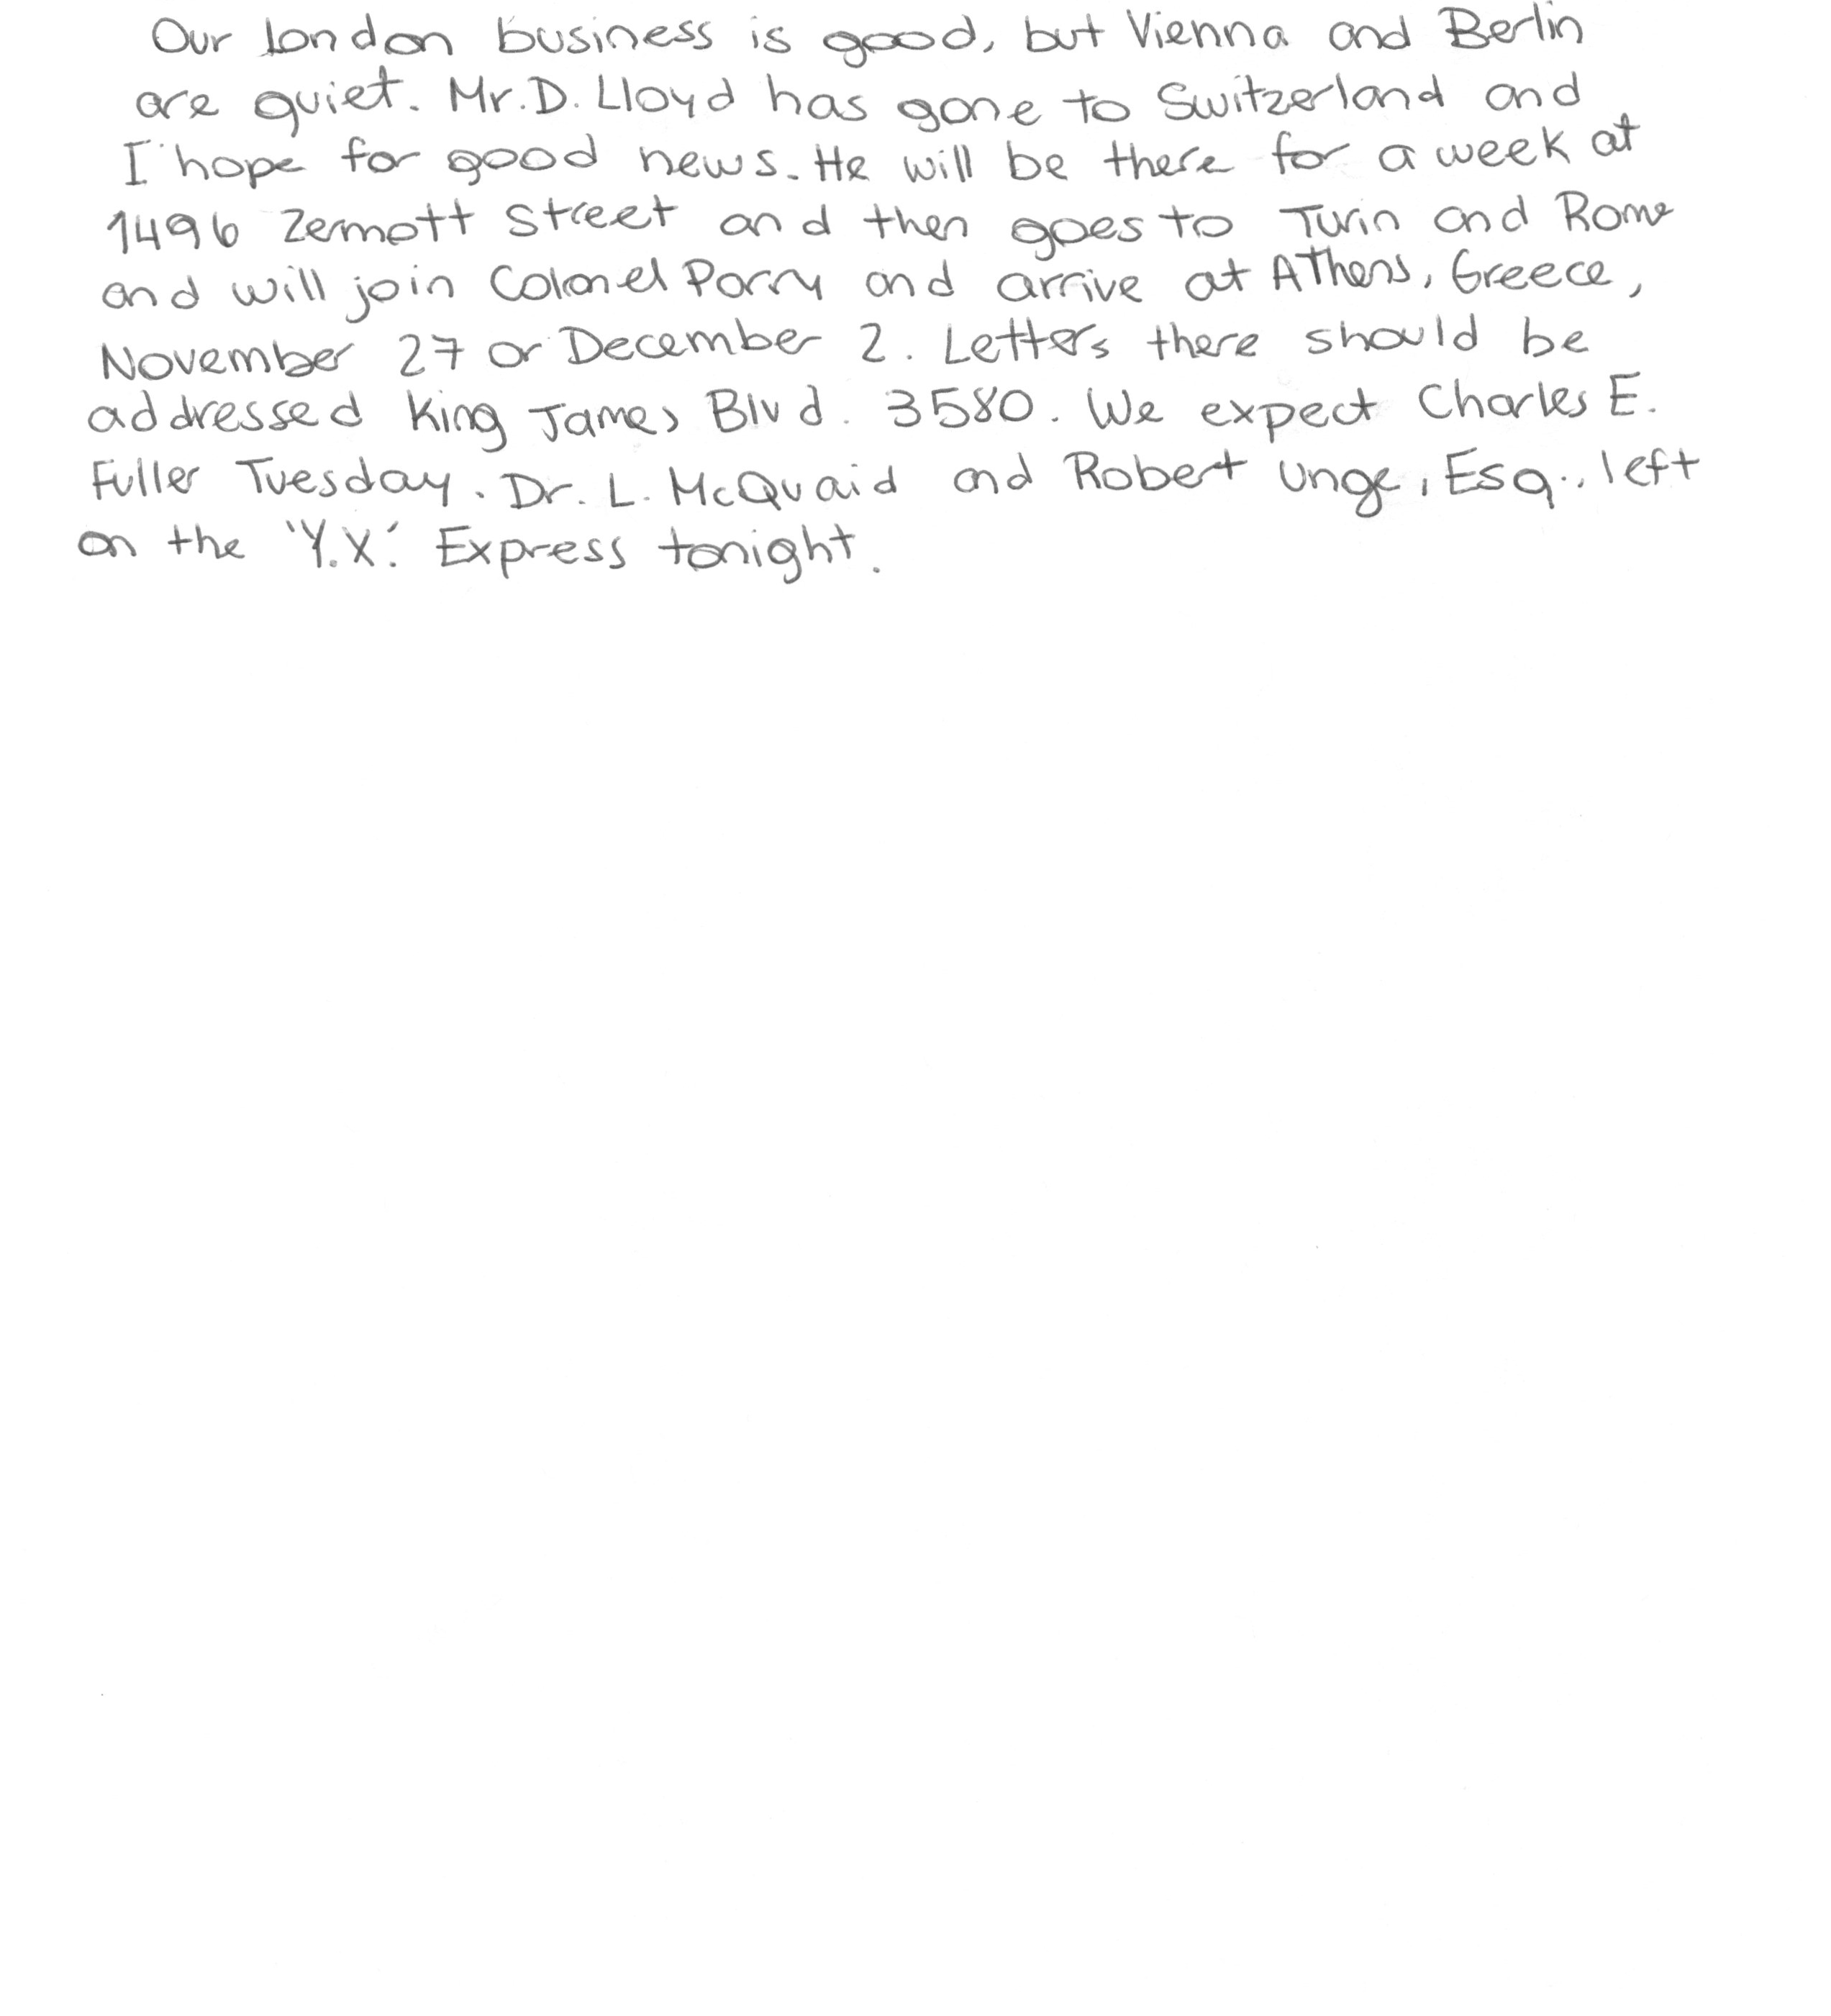 Our London business is good, but Vienna and Berlin
are quiet. Mr. D. Lloyd has gone to Switzerland and
I hope for good news. He will be there for a week at
1496 Zermott Street and then goes to Turin and Rome
and will join Colonel Parry and arrive at Athens, Greece,
November 27 or December 2. Letters there should be
addressed King James Blvd. 3580. We expect Charles E.
Fuller Tuesday. Dr. L. McQuaid and Robert Unge, Esq., left
on the 'Y.X.' Express tonight.